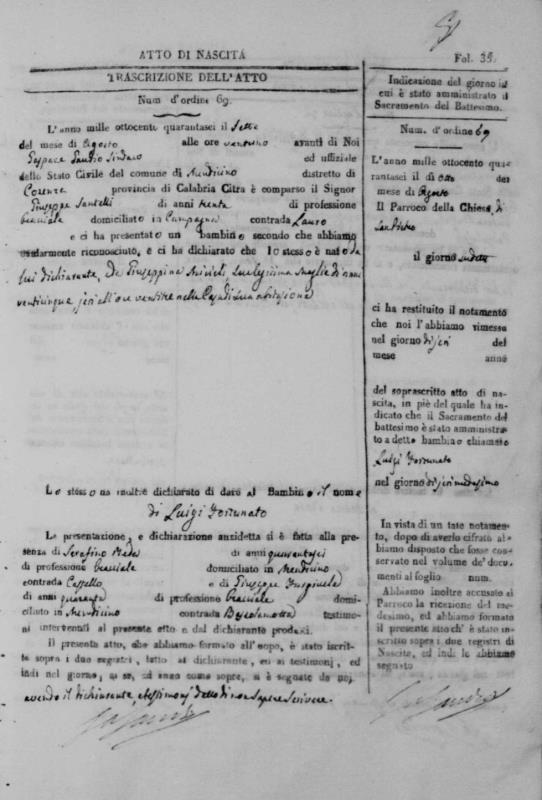 ATTO DI NASCITA
TRASCRIZIONE DELL'ATTO
Num d'ordine 69.
L'anno mille ottocento quarantasei il Sette
del mese di Agosto alle ore ventuno avanti di Noi
Sindaco ed uffiziale
dello Stato Civile del comune di Mendicino distretto di
Cosenza provincia di Calabria Citra è comparso il Signor
Giuseppe Santelli di anni trenta di professione
bracciale domiciliato in Campagna contrada Lauro
e ci ha presentato un bambino secondo che abbiamo
ocularmente riconosciuto, e ci ha dichiarato che lo stesso è nato da
lui dichiarante, Da Giuseppina sua legittima moglie di anni
venticinque jeri all'ore ventitre nella Casa di sua abitazione
Lo stesso na inoltre dichiarato di dare al Bambino il nome
di Luigi Fortunato
La presentazione, e dichiarazione anzidetta si è fatta alla pre-
senza di Serafino di anni quarantasei
di professione bracciale domiciliato in Mendicino
contrada Castello e di Giuseppe
di anni quaranta di professione bracciale domi-
ciliato in Mendicino contrada testimo-
ni intervenuti al presente atto e dal dichiarante prodotti.
Il presente atto, che abbiamo formato all'uopo, è stato iscrit-
to sopra i due registri, letto al dichiarante, ed ai testimonj, ed
indi nel giorno, mese, ed anno come sopra, si è segnato da noi,
avendo il dichiarante, e testimonj detto di non sapere scrivere.
Fol. 35.
Indicazione del giorno in
cui è stato amministrato il
Sacramento del Battesimo.
Num. d'ordine 69
L'anno mille ottocento qua-
rantasei il dì otto del
mese di Agosto
Il Parroco della Chiesa di
San Pietro
il giorno suddetto
ci ha restituito il notamento
che noi l'abbiamo rimesso
nel giorno di jeri del
mese anno
del soprascritto atto di na-
scita, in piè del quale ha in-
dicato che il Sacramento del
battesimo è stato amministra-
to a detto bambino chiamato
Luigi Fortunato
nel giorno di jeri medesimo
In vista di un tale notamen-
to, dopo di averlo cifrato ab-
biamo disposto che fosse con-
servato nel volume de' docu-
menti al foglio num.
Abbiamo inoltre accusato al
Parroco la ricezione del me-
desimo, ed abbiamo formato
il presente atto ch' è stato in-
scritto sopra i due registri di
Nascite, ed indi le abbiamo
segnato